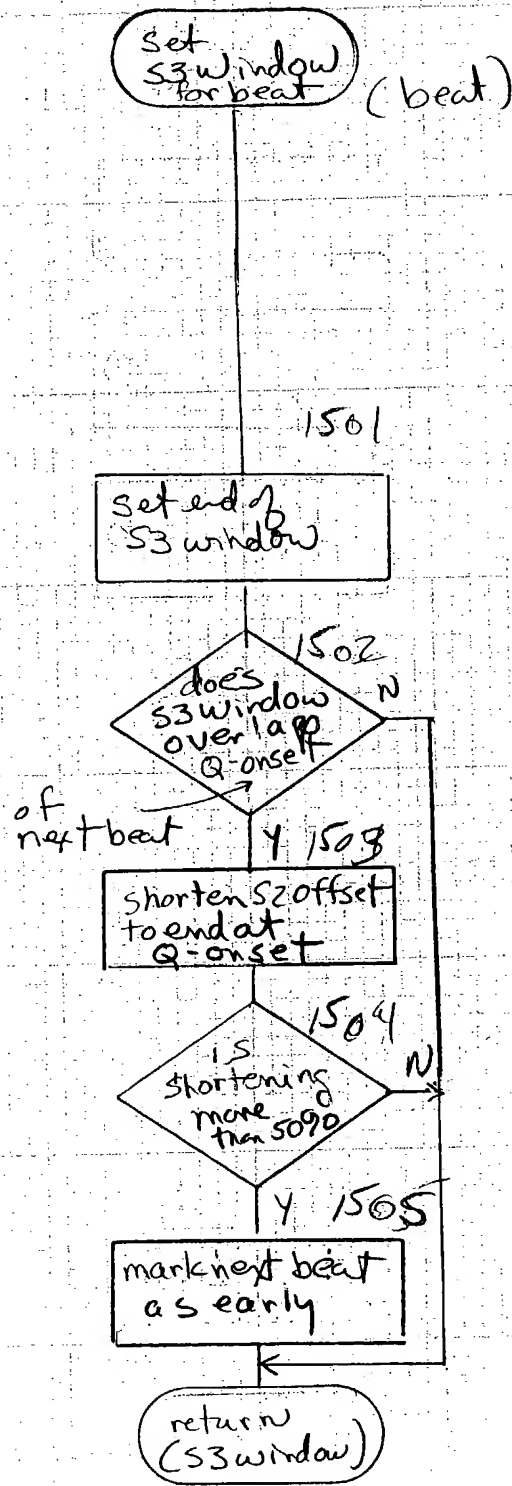 set
S3 window
for beat
(beat)
1501
set end of
S3 window
1502
does
S3 window
overlapp
Q-onset
N
of
next beat
Y 1503
shorten S2 offset
to end at
Q-onset
1504
is
shortening
more
than 50%
N
Y 1505
mark next beat
as early
return
(S3 window)